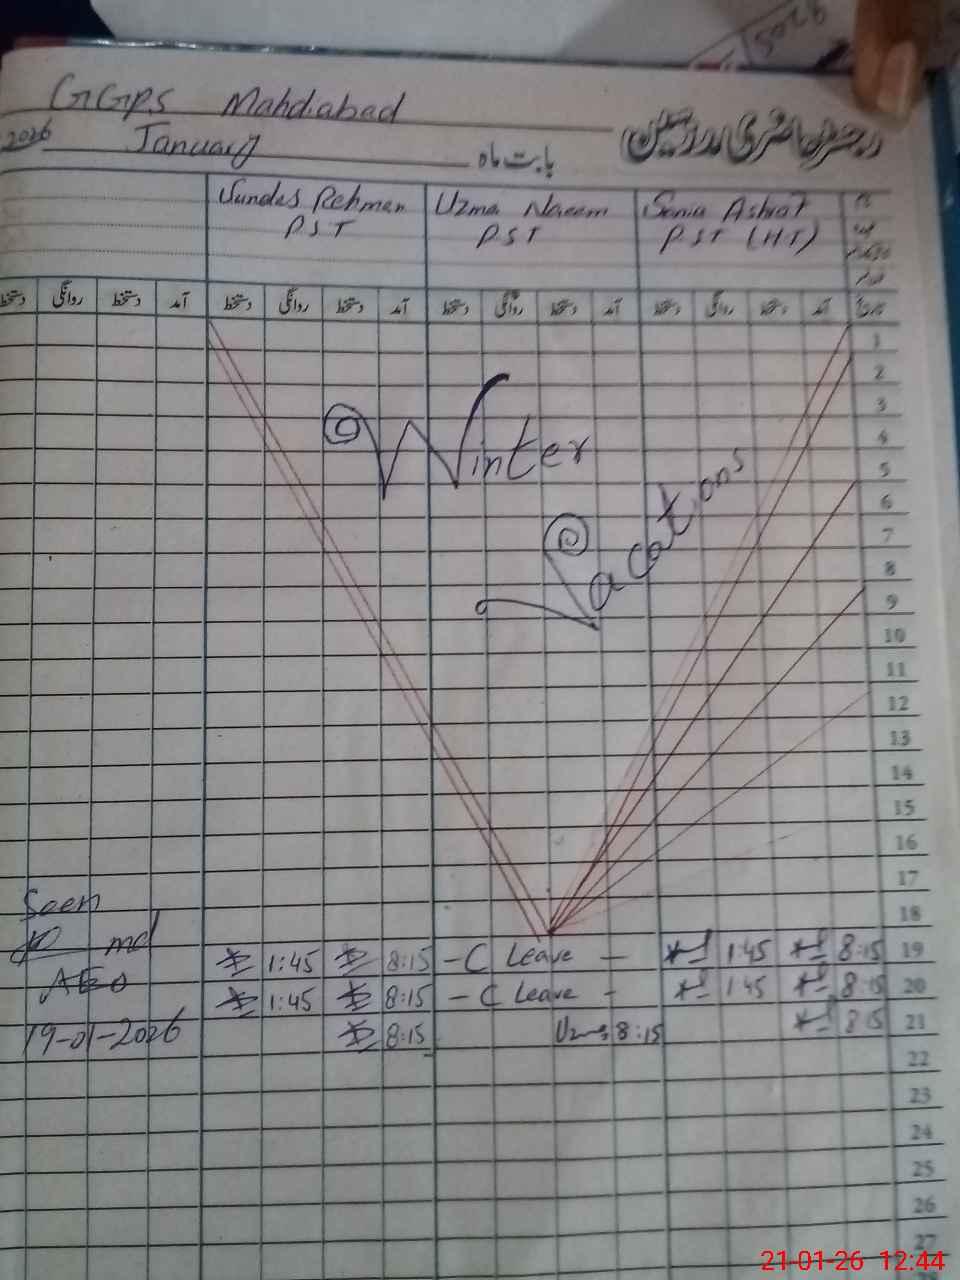 5028
GGPS Mahdiabad
رجسٹر حاضری مدرسین
2026 January بابت ماہ
Sundas Rehman Uzma Naeem Sania Ashraf
PST PST PST (HT)
دستخط روانگی دستخط آمد دستخط روانگی دستخط آمد دستخط روانگی دستخط آمد دستخط روانگی دستخط آمد تاریخ
1
2
3
Winter
4
5
Vacations
6
7
8
9
10
11
12
13
14
15
16
17
Seen
18
md
1:45 8:15 - C Leave - 1:45 8:15 19
AEO
1:45 8:15 - C Leave - 1:45 8:15 20
19-01-2026
8:15 Uzma 8:15 8:15 21
22
23
24
25
26
27
21-01-26 12:44